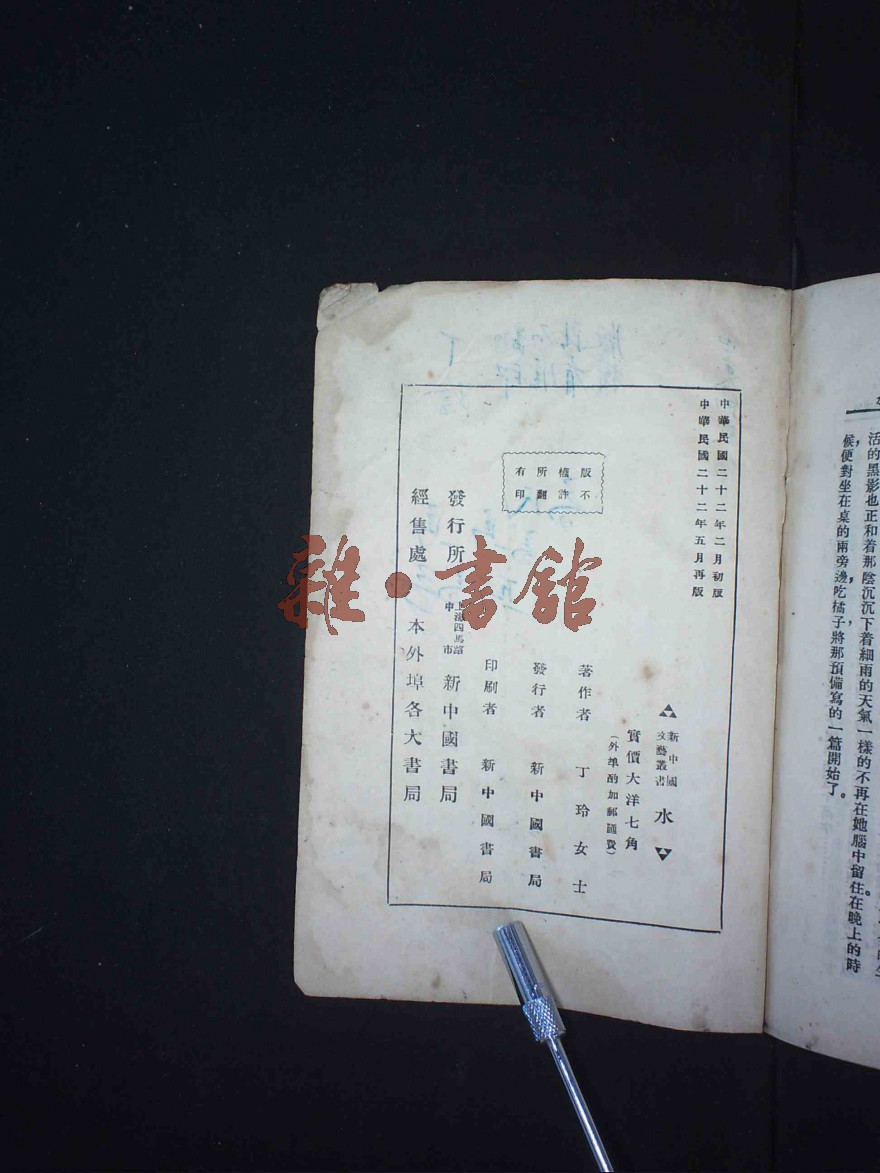 活的黑影也正和着那陰沉沉下着細雨的天氣一樣的不再在她腦中留住在晚上的時
候,便對坐在桌的兩旁邊,吃橘子,將那預備寫的一篇開始了。
中華民國二十二年二月初版
中華民國二十二年五月再版
新中國文藝叢書 水
實價大洋七角
(外埠酌加郵匯費)
著作者 丁玲女士
發行者 新中國書局
印刷者 新中國書局
版權所有
不許翻印
發行所 上海四馬路中市 新中國書局
經售處 本外埠各大書局
雜·書館